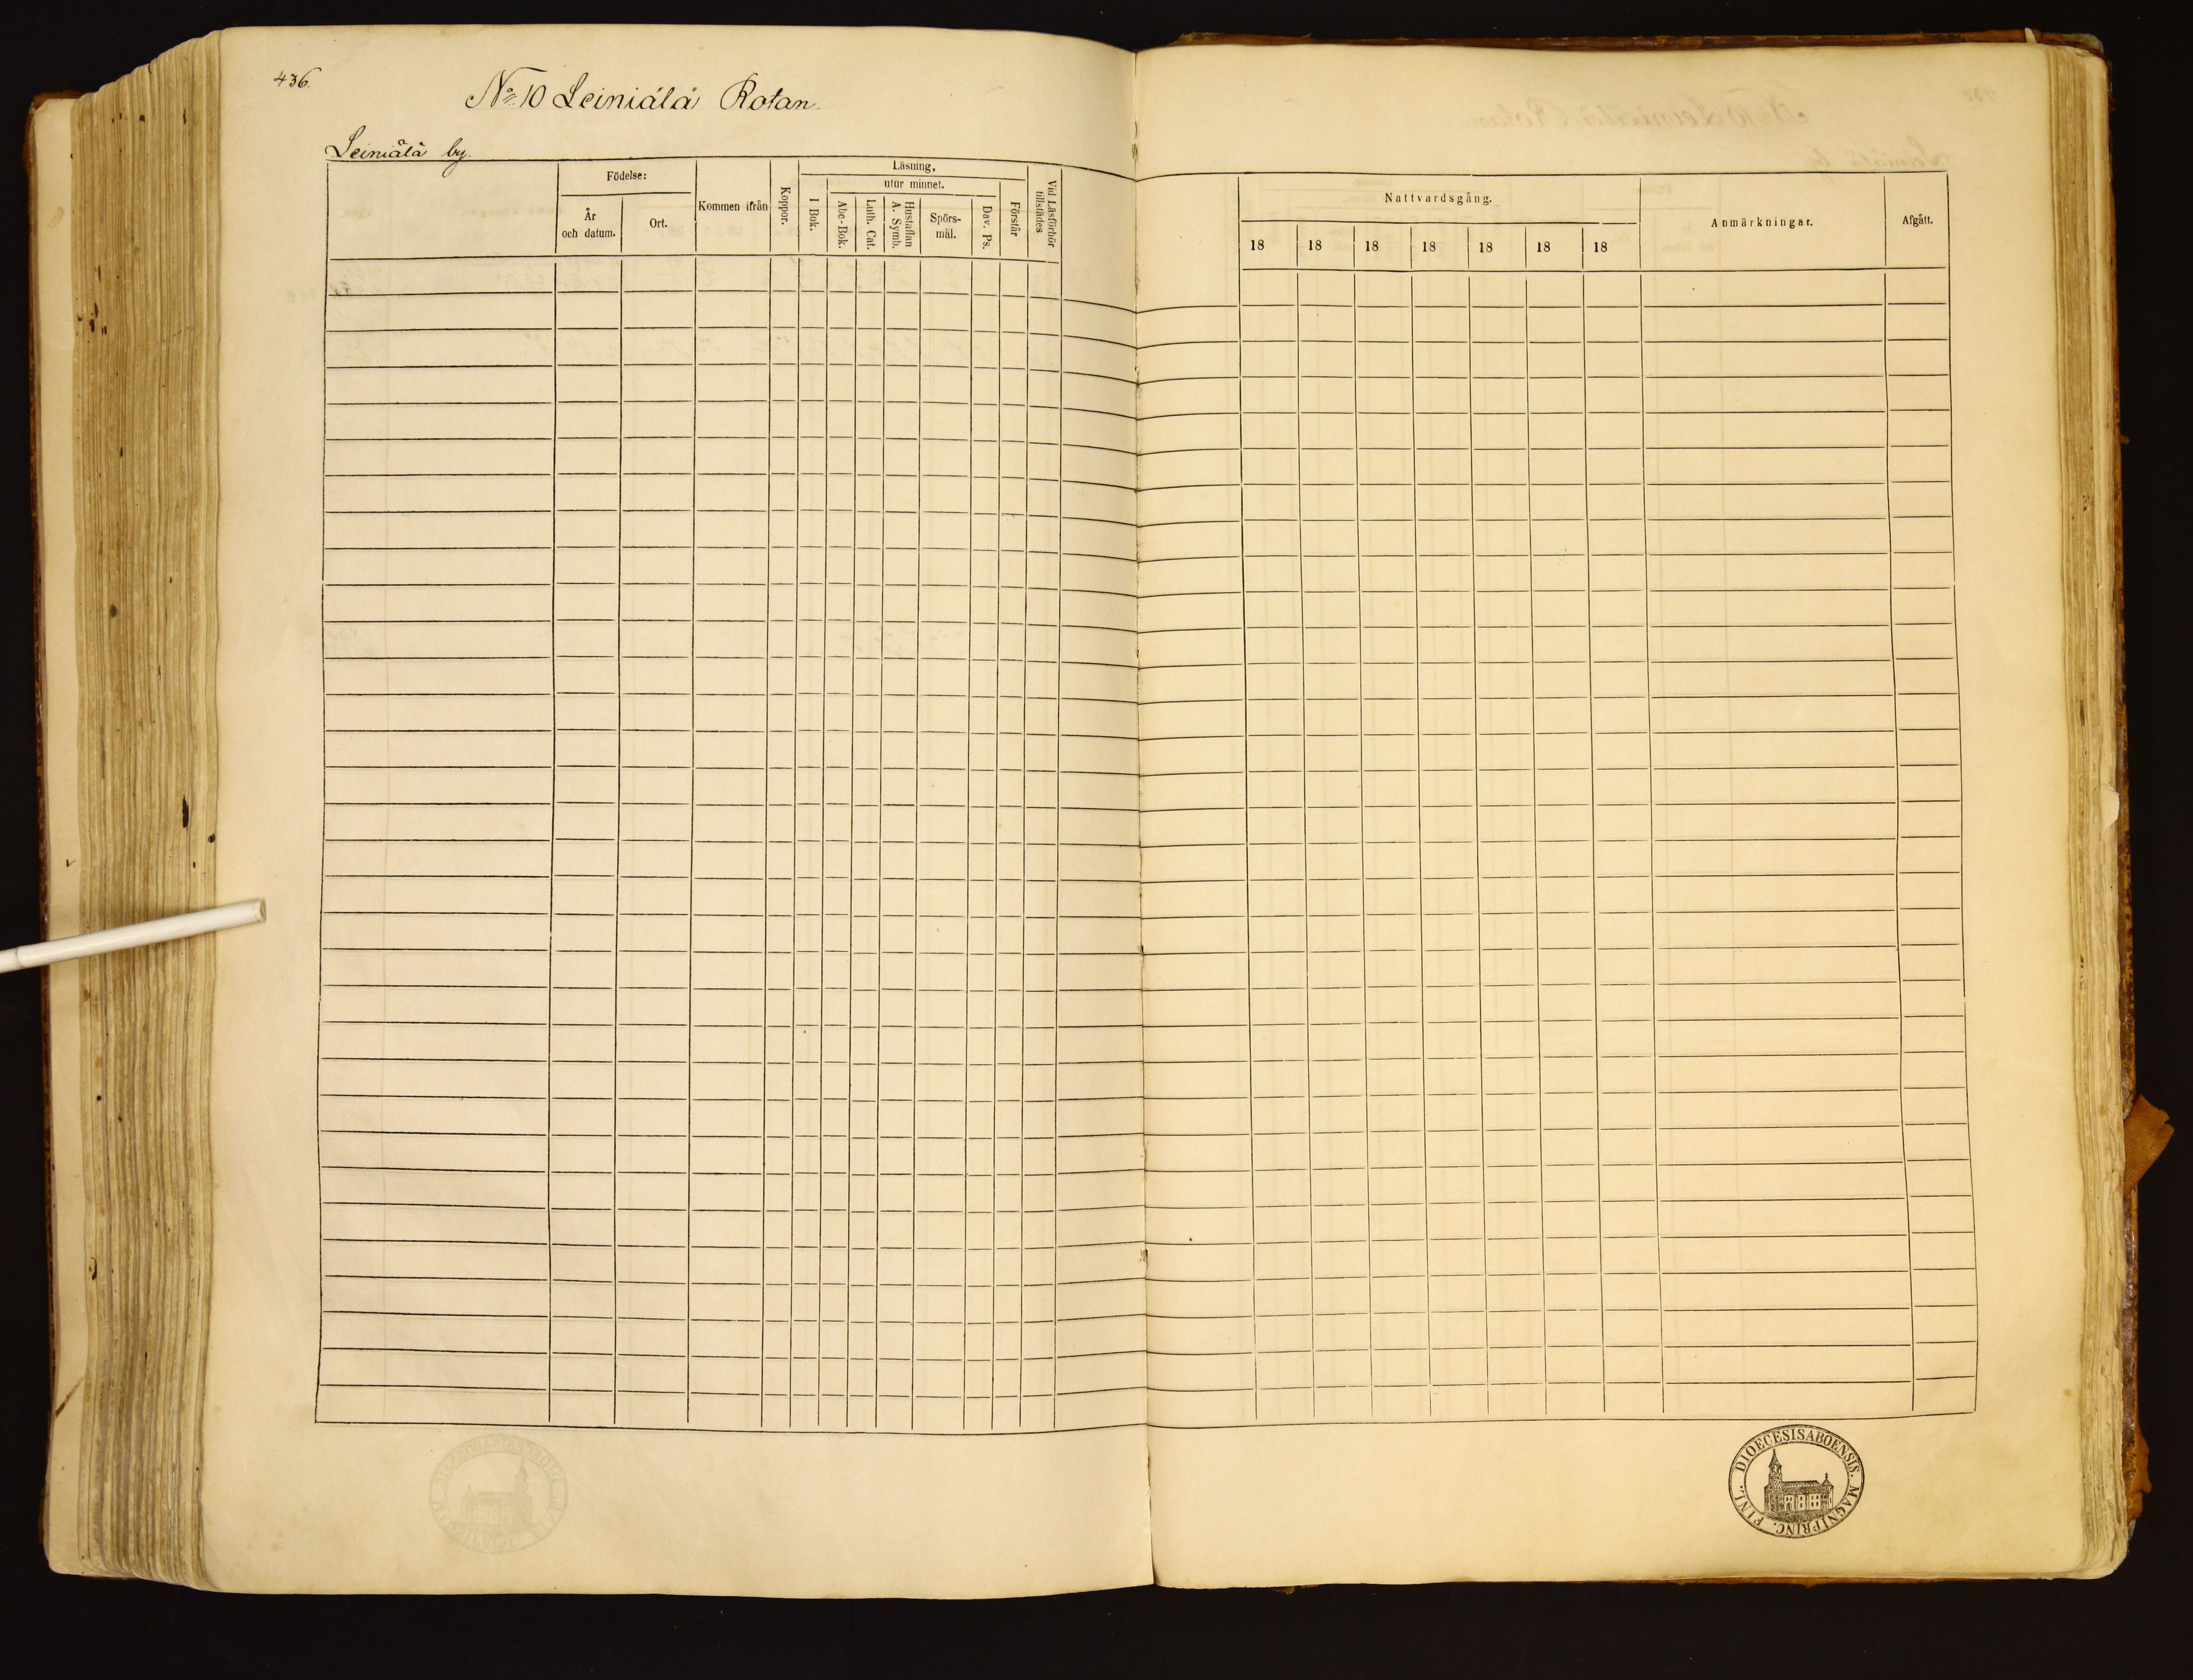 436.
No 10 Leiniälä Rotan.
Leiniälä by.
Födelse:
År och datum.
Ort.
Kommen ifrån
Koppor.
Läsning,
utur minnet.
I Bok.
Abc-Bok.
Luth. Cat.
Hustaflan A. Symb.
Spörsmål.
Dav. Ps.
Förstår
Vid Läsförhör tillstädes
Nattvardsgång.
18 18 18 18 18 18 18
Anmärkningar.
Afgått.
DIOECESIS ABOENSIS. MAGNI PRINC. FINL.